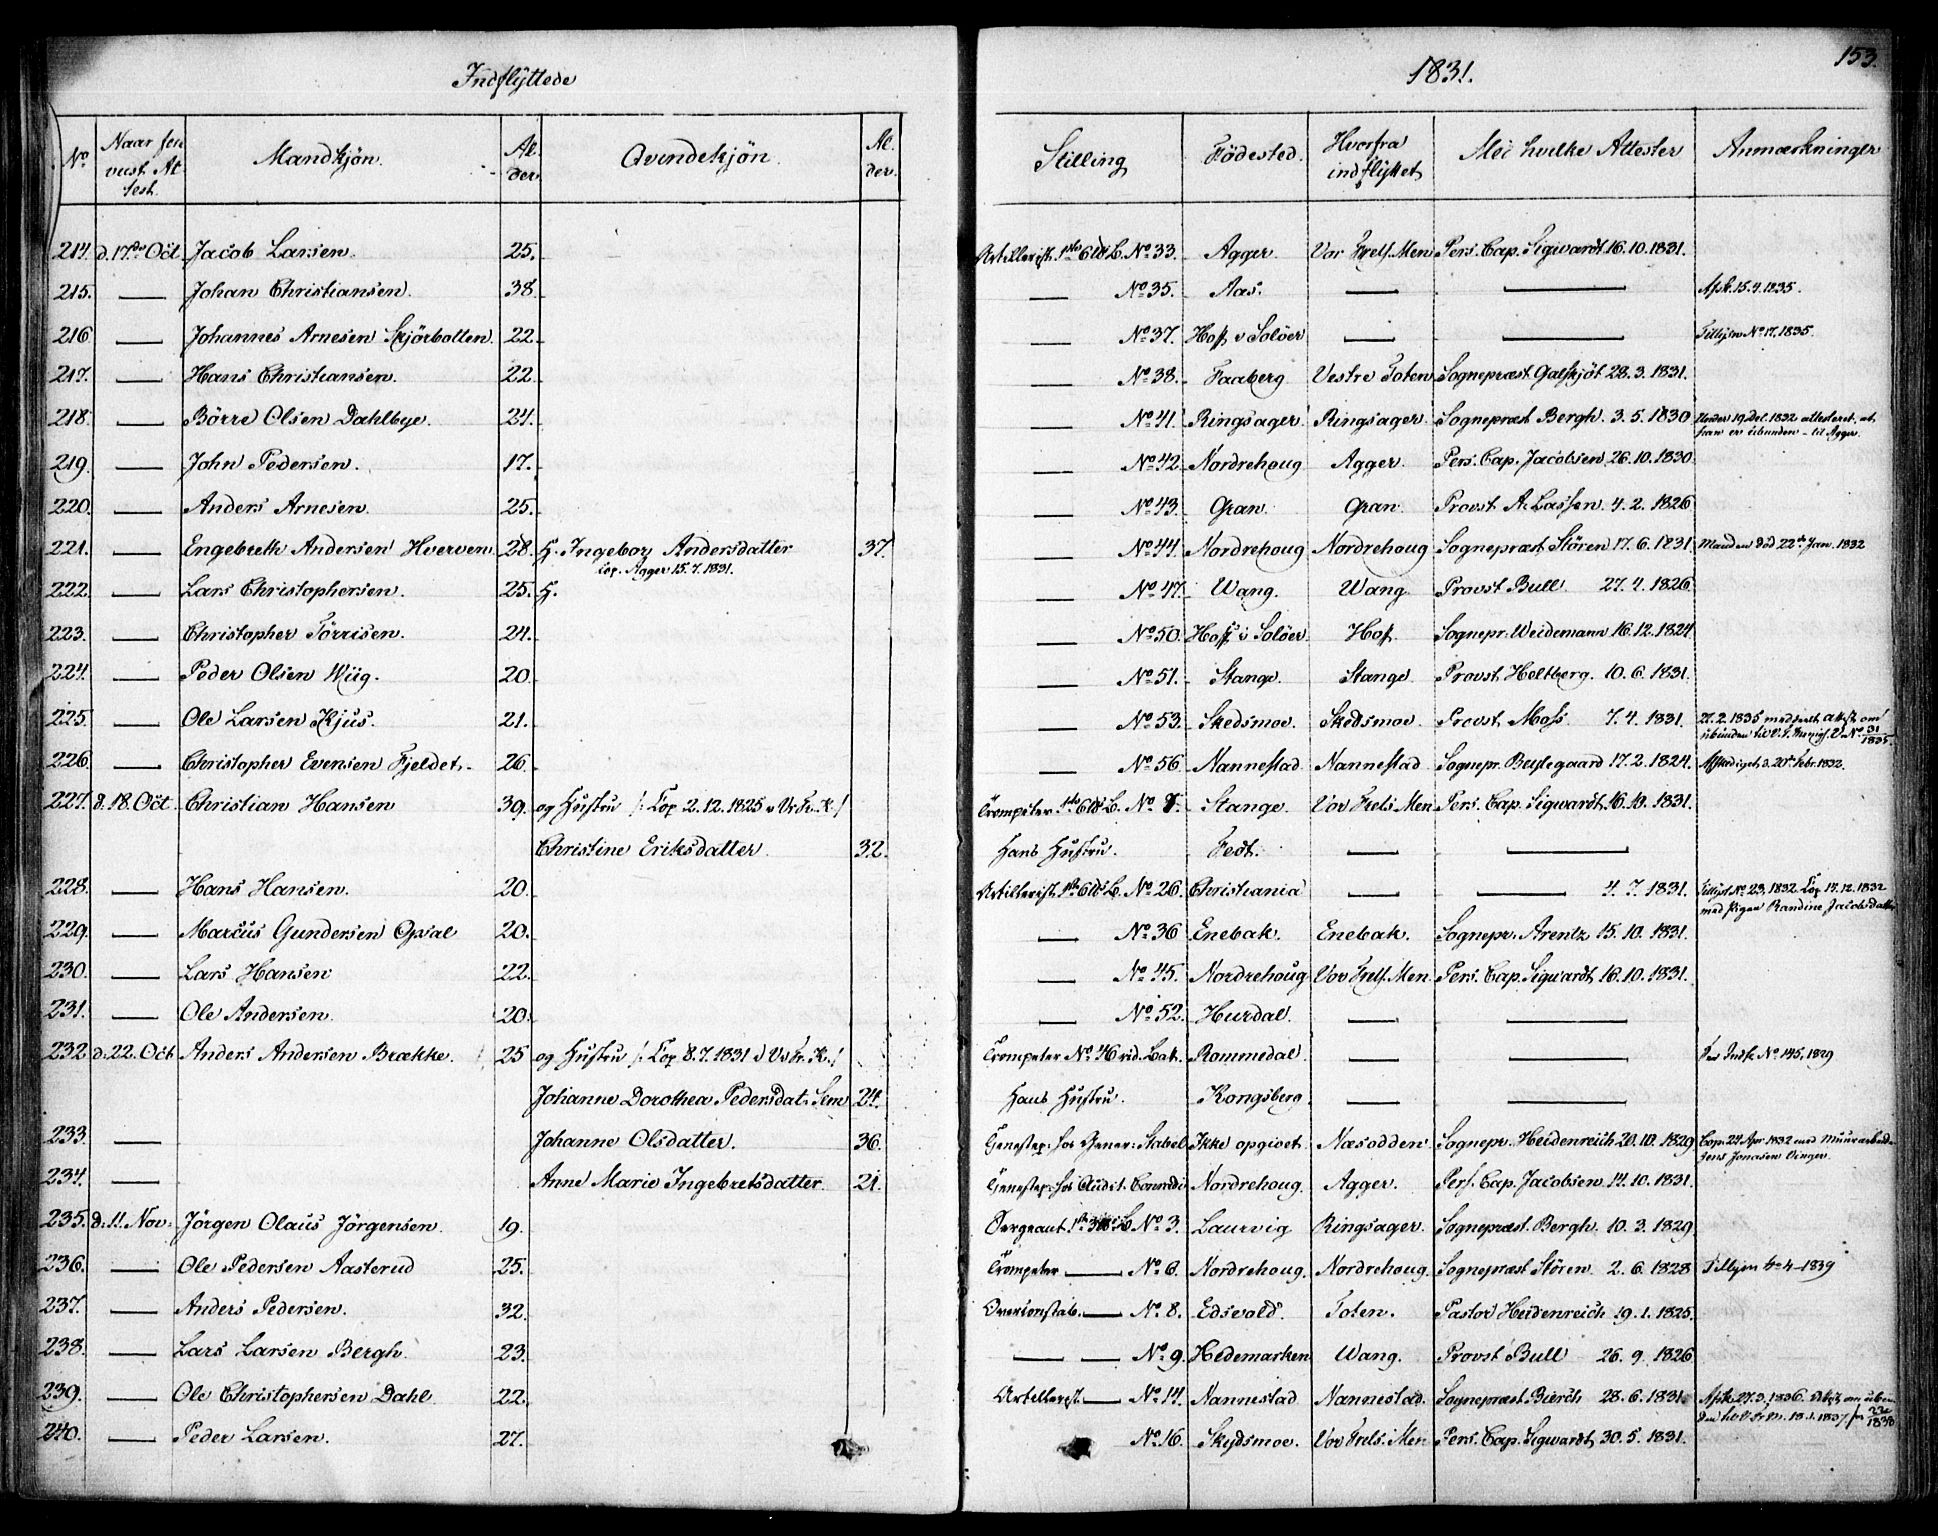 Indflyttede
1831.
153.
No Naar for Mandkjøn. Al- Qvindekjøn. Al-
vust At- der. der.
test.
Stilling Fødested. Hvorfra indflyttet Med hvilke Attester Anmærkninger
214. d. 17de Oct. Jacob Larsen. 25. Artillerist. No 33. Agger. Vor Frels. Men Pers. Cap. Sigwardt 16.10.1831.
215. — Johan Christiansen. 38. — No 35. Aas. — — Afsk. 15.4.1835.
216. — Johannes Arnesen Skjörbotten 22. — No 37. Hof v Solöer — — No 17, 1835.
217. — Hans Christiansen. 22. — No 38. Faaberg Vestre Toten Sognepræst Galskjöt 28.3.1831.
218. — Börre Olsen Dahlbye. 24. — No 41. Ringsager. Ringsager. Sognepræst Bergh. 3.5.1830 Under 19. Dec. 1832 attesteret, at
han er ubunden – til Agger.
219. — John Pedersen. 17. — No 42. Nordrehoug Agger. Pers. Cap. Jacobsen 26.10.1830.
220. — Anders Arnesen. 25. — No 43. Gran. Gran Provst A. Lassen. 4.2.1826
221. — Engebreth Andersen Hverven 28. H. Ingeborg Andersdatter 37. — No 44. Nordrehoug Nordrehoug Sognepræst Stören 17.6.1831. Manden död 22de Jan. 1832
Cop. Agger 15.7.1831.
222. — Lars Christophersen. 25. H. — No 47. Wang. Wang. Provst Bull 27.4.1826.
223. — Christopher Törrisen. 24. — No 50. Hof i Solöer. Hof. Sognepr. Weidemann 16.12.1824
224. — Peder Olsen Wiig. 20. — No 51. Stange. Stange Provst Heltberg. 10.6.1831.
225. — Ole Larsen Kjus. 21. — No 53. Skedsmoe. Skedsmoe. Provst Moss 7.4.1831. 21.2.1835 meddeelt Attest om
ubunden til V. F. Menigh. V. No 31/1835.
226. — Christopher Evensen Fjeldet. 26. — No 56. Nannestad Nannestad Sognepr. 17.2.1824. Afskediget d. 20de Febr. 1832.
227. d. 18. Oct. Christian Hansen 39. og Hustru /: Cop 2.12.1825 v Vr Fr. K. :/ Trompeter No Stange. Vor Frels. Men Pers. Cap. Sigwardt 16.10.1831.
Christine Eriksdatter. 32. Hans Hustru. Fedt. — —
228. — Hans Hansen. 20. Artillerist. No 26. Christiania — — 4.7.1831. No 23, 1832. Cop 17.12.1832
med Pigen Randine Jacobsdatter
229. — Marcus Gundersen Opsal 20. — No 36 Enebak. Enebak. Sognepr. Arentz 15.10.1831.
230. — Lars Hansen 22. — No 45. Nordrehoug Vor Frels. Men. Pers. Cap. Sigwardt 16.10.1831.
231. — Ole Andersen. 20. — No 52. Hurdal. — —
232 d. 22. Oct. Anders Andersen Brække. 25 og Hustru /: Cop 8.7.1831 i Vr Fr. K. :/ Trompeter No 46 rid. Bat. Rommedal. — — Indf. No 145, 1829
Johanne Dorothea Pedersdat. Sem 24. Hans Hustru. Kongsberg. — —
233. — Johanne Olsdatter. 36. Tjenestep. hos Gener. Stabel Ikke opgivet. Næsodden Sognepr. Heidenreich 20.10.1829 Cop. 24 Apr 1832 med Muurarbeid.
Jens Jonasen Vinger.
234. — Anne Marie Ingebretsdatter. 21. Tjenestep. hos Audit. Conradi Nordrehoug. Agger. Pers. Cap. Jacobsen 14.10.1831.
235. d. 11. Nov. Jörgen Olaus Jörgensen. 19. Sergeant No 3. Laurvig Ringsager. Sognepræst. Bergh. 10.3.1829.
236. — Ole Pedersen Aasterud 25. Trompeter — No 6. Nordrehoug. Nordrehoug. Sognepræst Stören. 2.6.1828 No 4–1839
237. — Anders Pedersen. 32. Overconstab. — No 8. Edsvold. Toten. Pastor Heidenreich 19.1.1825.
238. — Lars Larsen Bergh. 23. — — No 9. Hedemarken Wang. Provst Bull 26.9.1826
239. — Ole Christophersen Dahl. 22. Artillerist. — No 14. Nannestad Nannestad. Sognepræst Bierch 28.6.1831. Afsk. 27.3.1836. Attest om ubun-
den 18.1.1837 22/1838
240. — Peder Larsen. 27. No 16. Skydsmoe. Vor Frels. Men Pers. Cap. Sigwardt 30.5.1831.